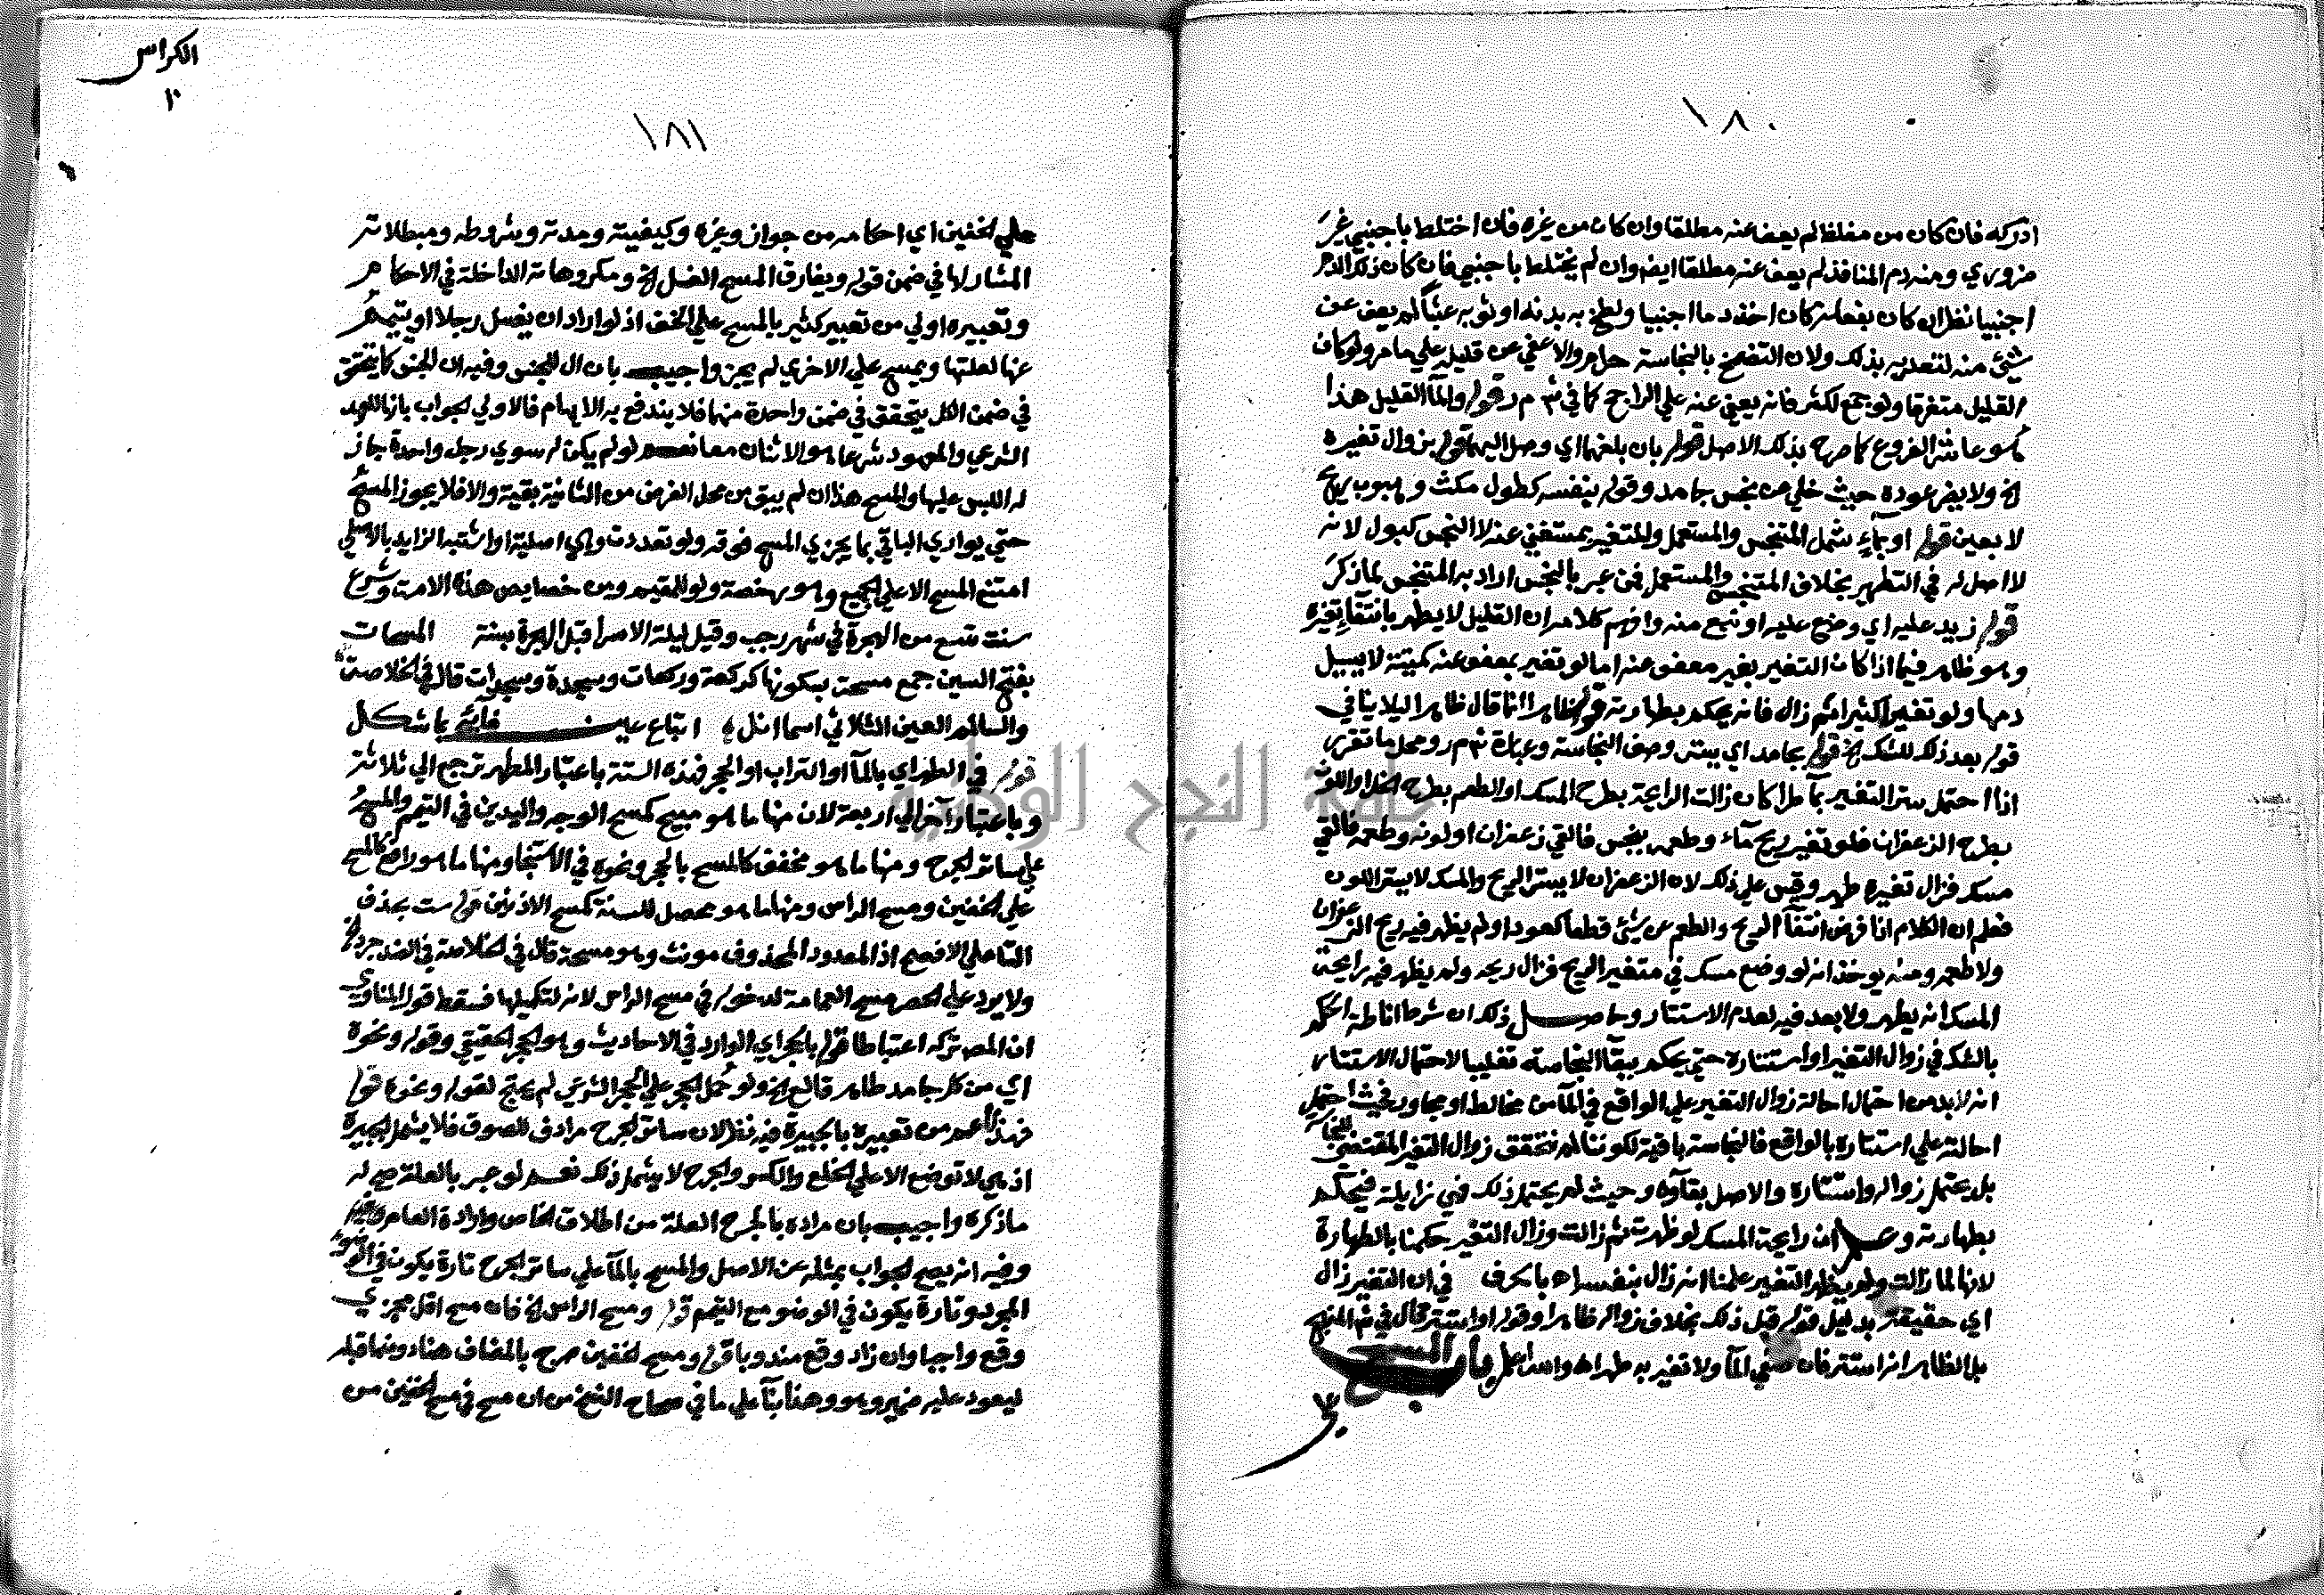 ١٨٠
ادركه فان كان من مغلظ لم يعف عنه مطلقا وان كان من غيره فان اختلط باجنبي غير
ضروري ومنه دم المنافذ لم يعف عنه مطلقا ايضا وان لم يختلط باجنبي فان كان ذلك الدم
اجنبيا نظر ان كان بفعله كان اخذ دما اجنبيا ولطخ به بدنه او ثوبه عبثا لم يعف عن
شيئ منه لتعديه بذلك ولان التضمخ بالنجاسة حرام والا عفي عن قليله علي ما مر ولو كان
القليل متفرقا ولو جمع لكثر فانه يعفي عنه علي الراجح كما في ش م ر قوله والمآ القليل هذا
هو عاشر الفروع كما صرح بذلك الاصل قوله بان بلغهما اي وصل اليهما قوله بزوال تغيره
الخ ولا يضر عوده حيث خلي عن نجس جامد وقوله بنفسه كطول مكث وهبوب ريح
لا بعين قوله او بمآء شمل المتنجس والمستعمل والمتغير بمستغني عنه لا النجس كبول لانه
لا اصل له في التطهير بخلاف المتنجس والمستعمل فمن عبر بالنجس اراد به المتنجس لما ذكر
قوله زيد عليه اي وضع عليه او نبع منه وافهم كلامه ان القليل لا يطهر بانتفآ تغيره
وهو ظاهر فيما اذا كان التغير بغير معفو عنه اما لو تغير بمعفو عنه كميتة لا يسيل
دمها ولو تغيرا كثيرا ثم زال فانه يحكم بطهارته قوله ظاهرا انما قال ظاهرا ليلا ينافي
قوله بعد ذلك للشك الخ قوله بجامد اي يستر وصف النجاسة وعبارة ش م ر ومحل ما تقرر
اذا احتمل ستر التغير بما طرا كان زالت الرايحة بطرح المسك او الطعم بطرح الخل او اللون
بطرح الزعفران فلو تغير ريح مآء وطعمه بنجس فالقي زعفران او لونه وطعمه فالقي
مسك فزال تغيره طهر وقس علي ذلك لان الزعفران لا يستر الريح والمسك لا يستر اللون
فعلم ان الكلام اذا فرض انتفآ الريح والطعم عن شيئ قطعا كعود او لم يظهر فيه ريح الزعفران
ولا طعمه ومنه يوخذ انه لو وضع مسك في متغير الريح فزال ريحه ولم يظهر فيه رايحة
المسك انه يطهر ولا بعد فيه لعدم الاستتار وحاصل ذلك ان شرط اناطة الحكم
بالشك في زوال التغير او استتاره حتي يحكم ببقآ النجاسة تغليبا لاحتمال الاستتار
انه لا بد من احتمال احالة زوال التغير علي الواقع في المآ من مخالط او مجاور فحيث احتمل
احالته علي استتاره بالواقع فالنجاسة باقية لكوننا لم نتحقق زوال التغير المقتضي للنجاسة
بل يحتمل زواله واستتاره والاصل بقاوه وحيث لم يحتمل ذلك فهي زايلة فيحكم
بطهارته وعلم ان رايحة المسك لو ظهرت ثم زالت وزال التغير حكمنا بالطهارة
لانها لما زالت ولم يظهر التغير علمنا انه زال بنفسه اه بالحرف في ان التغير زال
اي حقيقة بدليل قوله قبل ذلك بخلاف زواله ظاهرا وقوله او استتر قال في ش المنهج
بل الظاهر انه استتر فان صفي المآ ولا تغير به طهر اه والله اعلم باب المسح
الكراس
١٠
١٨١
علي الخفين اي احكامه من جواز وغيره وكيفيته ومدته وشروطه ومبطلاته
المشار لها في ضمن قوله ويفارق المسح الغسل الخ ومكروهاته الداخلة في الاحكام
وتعبيره اولي من تعبير كثير بالمسح علي الخف اذ لو اراد ان يغسل رجلا او يتيمم
عنها لعلتها ويمسح علي الاخري لم يجز واجيب بان ال للجنس وفيه ان الجنس كما يتحقق
في ضمن الكل يتحقق في ضمن واحدة منها فلا يندفع به الايهام فالاولي الجواب بانها للعهد
الشرعي والمعهود شرعا هو الاثنان معا نعم لو لم يكن له سوي رجل واحدة جاز
له اللبس عليها والمسح هذا ان لم يبق من محل الفرض من الثانية بقية والا فلا يجوز المسح
حتي يواري الباقي بما يجزي المسح فوقه ولو تعددت وهي اصلية او اشتبه الزايد بالاصلي
امتنع المسح الا علي الجميع وهو رخصة ولو للمقيم ومن خصايص هذه الامة وشرع
سنة تسع من الهجرة في شهر رجب وقيل ليلة الاسرا قبل الهجرة بسنة المسحات
بفتح السين جمع مسحة بسكونها كركعة وركعات وسجدة وسجدات قال في الخلاصة
والسالم العين الثلاثي اسما انل اتباع عين فائه بما شكل
قوله في الطهر اي بالمآ او التراب او الحجر فهذه الستة باعتبار المطهر ترجع الي ثلاثة
وباعتبار آخر الي اربعة لان منها ما هو مبيح كمسح الوجه واليدين في التيمم والمسح
علي ساتر الجرح ومنها ما هو مخفف كالمسح بالحجر ونحوه في الاستنجا ومنها ما هو رافع كالمسح
علي الخفين ومسح الراس ومنها ما هو محصل للسنة كمسح الاذنين قوله ست بحذف
التا علي الافصح اذ المعدود المحذوف مونث وهو مسحة قال في الخلاصة في الضد جرد الخ
ولا يرد علي الحصر مسح العمامة لدخوله في مسح الراس لانه لتكميلها فسقط قول المناوي
ان المص تركه اعتباطا قوله بالحجر اي الوارد في الاحاديث وهو الحجر الحقيقي وقوله ونحوه
اي من كل جامد طاهر قالع الخ ولو حمل الحجر علي الحجر الشرعي لم يحتج لقوله ونحوه قوله
فهذا اعم من تعبيره بالجبيرة فيه نظر لان ساتر الجرح مرادف للصوق فلا يشمل الجبيرة
اذ هي لا توضع الا علي الخلع والكسر والجرح لا يشمل ذلك نعم لو عبر بالعلة صح له
ما ذكره واجيب بان مراده بالجرح العلة من اطلاق الخاص وارادة العام
وفيه انه يصح الجواب بمثله عن الاصل والمسح بالمآ علي ساتر الجرح تارة يكون في الوضوء
المجرد وتارة يكون في الوضو مع التيمم قوله ومسح الراس الخ فان مسح اقل مجزي
وقع واجبا وان زاد وقع مندوبا قوله ومسح الخفين صرح بالمضاف هنا دون ما قبله
ليعود عليه ضمير وهو وهذا بنآ علي ما في صحاح النسخ من ان مسح في مسح الخفين من